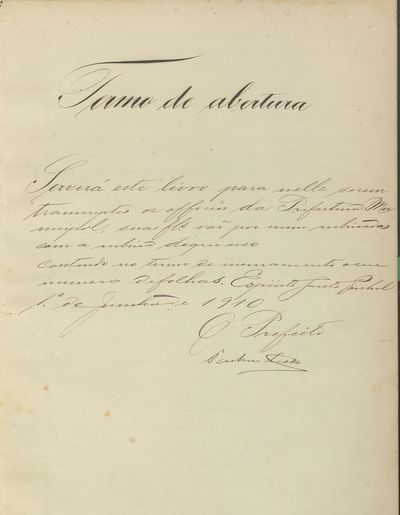 Termo de abertura
Servirá este livro para nelle serem
transcriptos os officios da Prefeitura Mu-
nicipal, suas fls vão por mim rubricadas
com a rubrica de que uso
contendo no termo de encerramento o seu
numero de folhas. Espirito Santo Pinhal
1º de Janeiro de 1910
O Prefeito